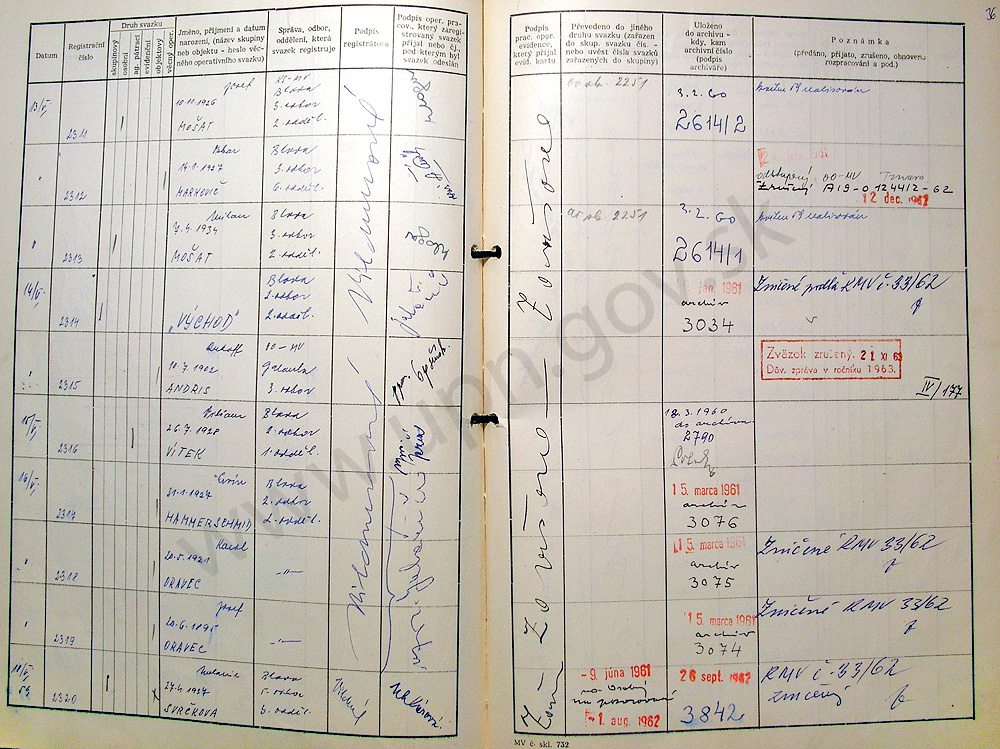 36
Datum
Registrační číslo
Druh svazku
skupinový
osobní
ag. pátrací
evidenční
objektový
věcný oper.
Jméno, příjmení a datum
narození, (název skupiny
neb objektu - heslo věc-
ného operativního svazku)
Správa, odbor,
oddělení, která
svazek registruje
Podpis
registrátora
Podpis oper. pra-
cov., který zaregi-
stroval svazek
přijal nebo čj.,
pod kterým byl
svazek odeslán
Podpis
prac. opr.
evidence,
který přijal
evid. kartu
Převedeno do jiného
druhu svazku (zařazen
do skup. svazku čís. -
nebo uvést čísla svazků
zařazených do skupiny)
Uloženo
do archivu -
kdy, kam
archivní číslo
(podpis
archiváře)
Poznámka
(předáno, přijato, zrušeno, obnoveno
rozpracování a pod.)
13/V.
2311
Jozef
10.11.1926
MOŠAŤ
KS-MV
Blava
3. odbor
2. odděl.
2251
3.2.60
2614/2
"
2312
14.1.1927
MARKOVIČ
Blava
3. odbor
6. odděl.
1961
odstúpený OO-MV Trnava
Zrušený A19-01244/2-62
12 dec. 1962
"
2313
Milan
7.4.1934
MOŠAŤ
Blava
3. odbor
2. odděl.
2251
3.2.60
2614/1
14/V.
2314
„VÝCHOD"
Blava
2. odbor
2. odděl.
jan. 1961
archív
3034
Zničené podľa RMV č. 33/62
"
2315
Rudolf
10.7.1902
ANDRIS
OO-MV
Galanta
3. odbor
Zväzok zrušený. 21 XI 63
Dôv. zpráva v ročníku 1963.
IV/177
15/V.
2316
Viliam
26.7.1928
VÍTEK
Blava
2. odbor
1. odděl.
18.3.1960
do archívu
2790
16/V.
2317
31.1.1927
HAMMERSCHMID
Blava
2. odbor
2. odděl.
15. marca 1961
archív
3076
"
2318
Karol
20.5.1921
ORAVEC
-"-
15. marca 1961
archív
3075
Zničené RMV 33/62
"
2319
Jozef
20.6.1895
ORAVEC
-"-
15. marca 1961
archív
3074
Zničené RMV 33/62
18/V.
59
2320
Melanie
27.4.1927
SVRČKOVA
Blava
5. odbor
6. odděl.
- 9. júna 1961
- 1. aug. 1962
26 sept. 1962
3842
RMV č. 33/62
zničený
MV č. skl. 752
www.upn.gov.sk